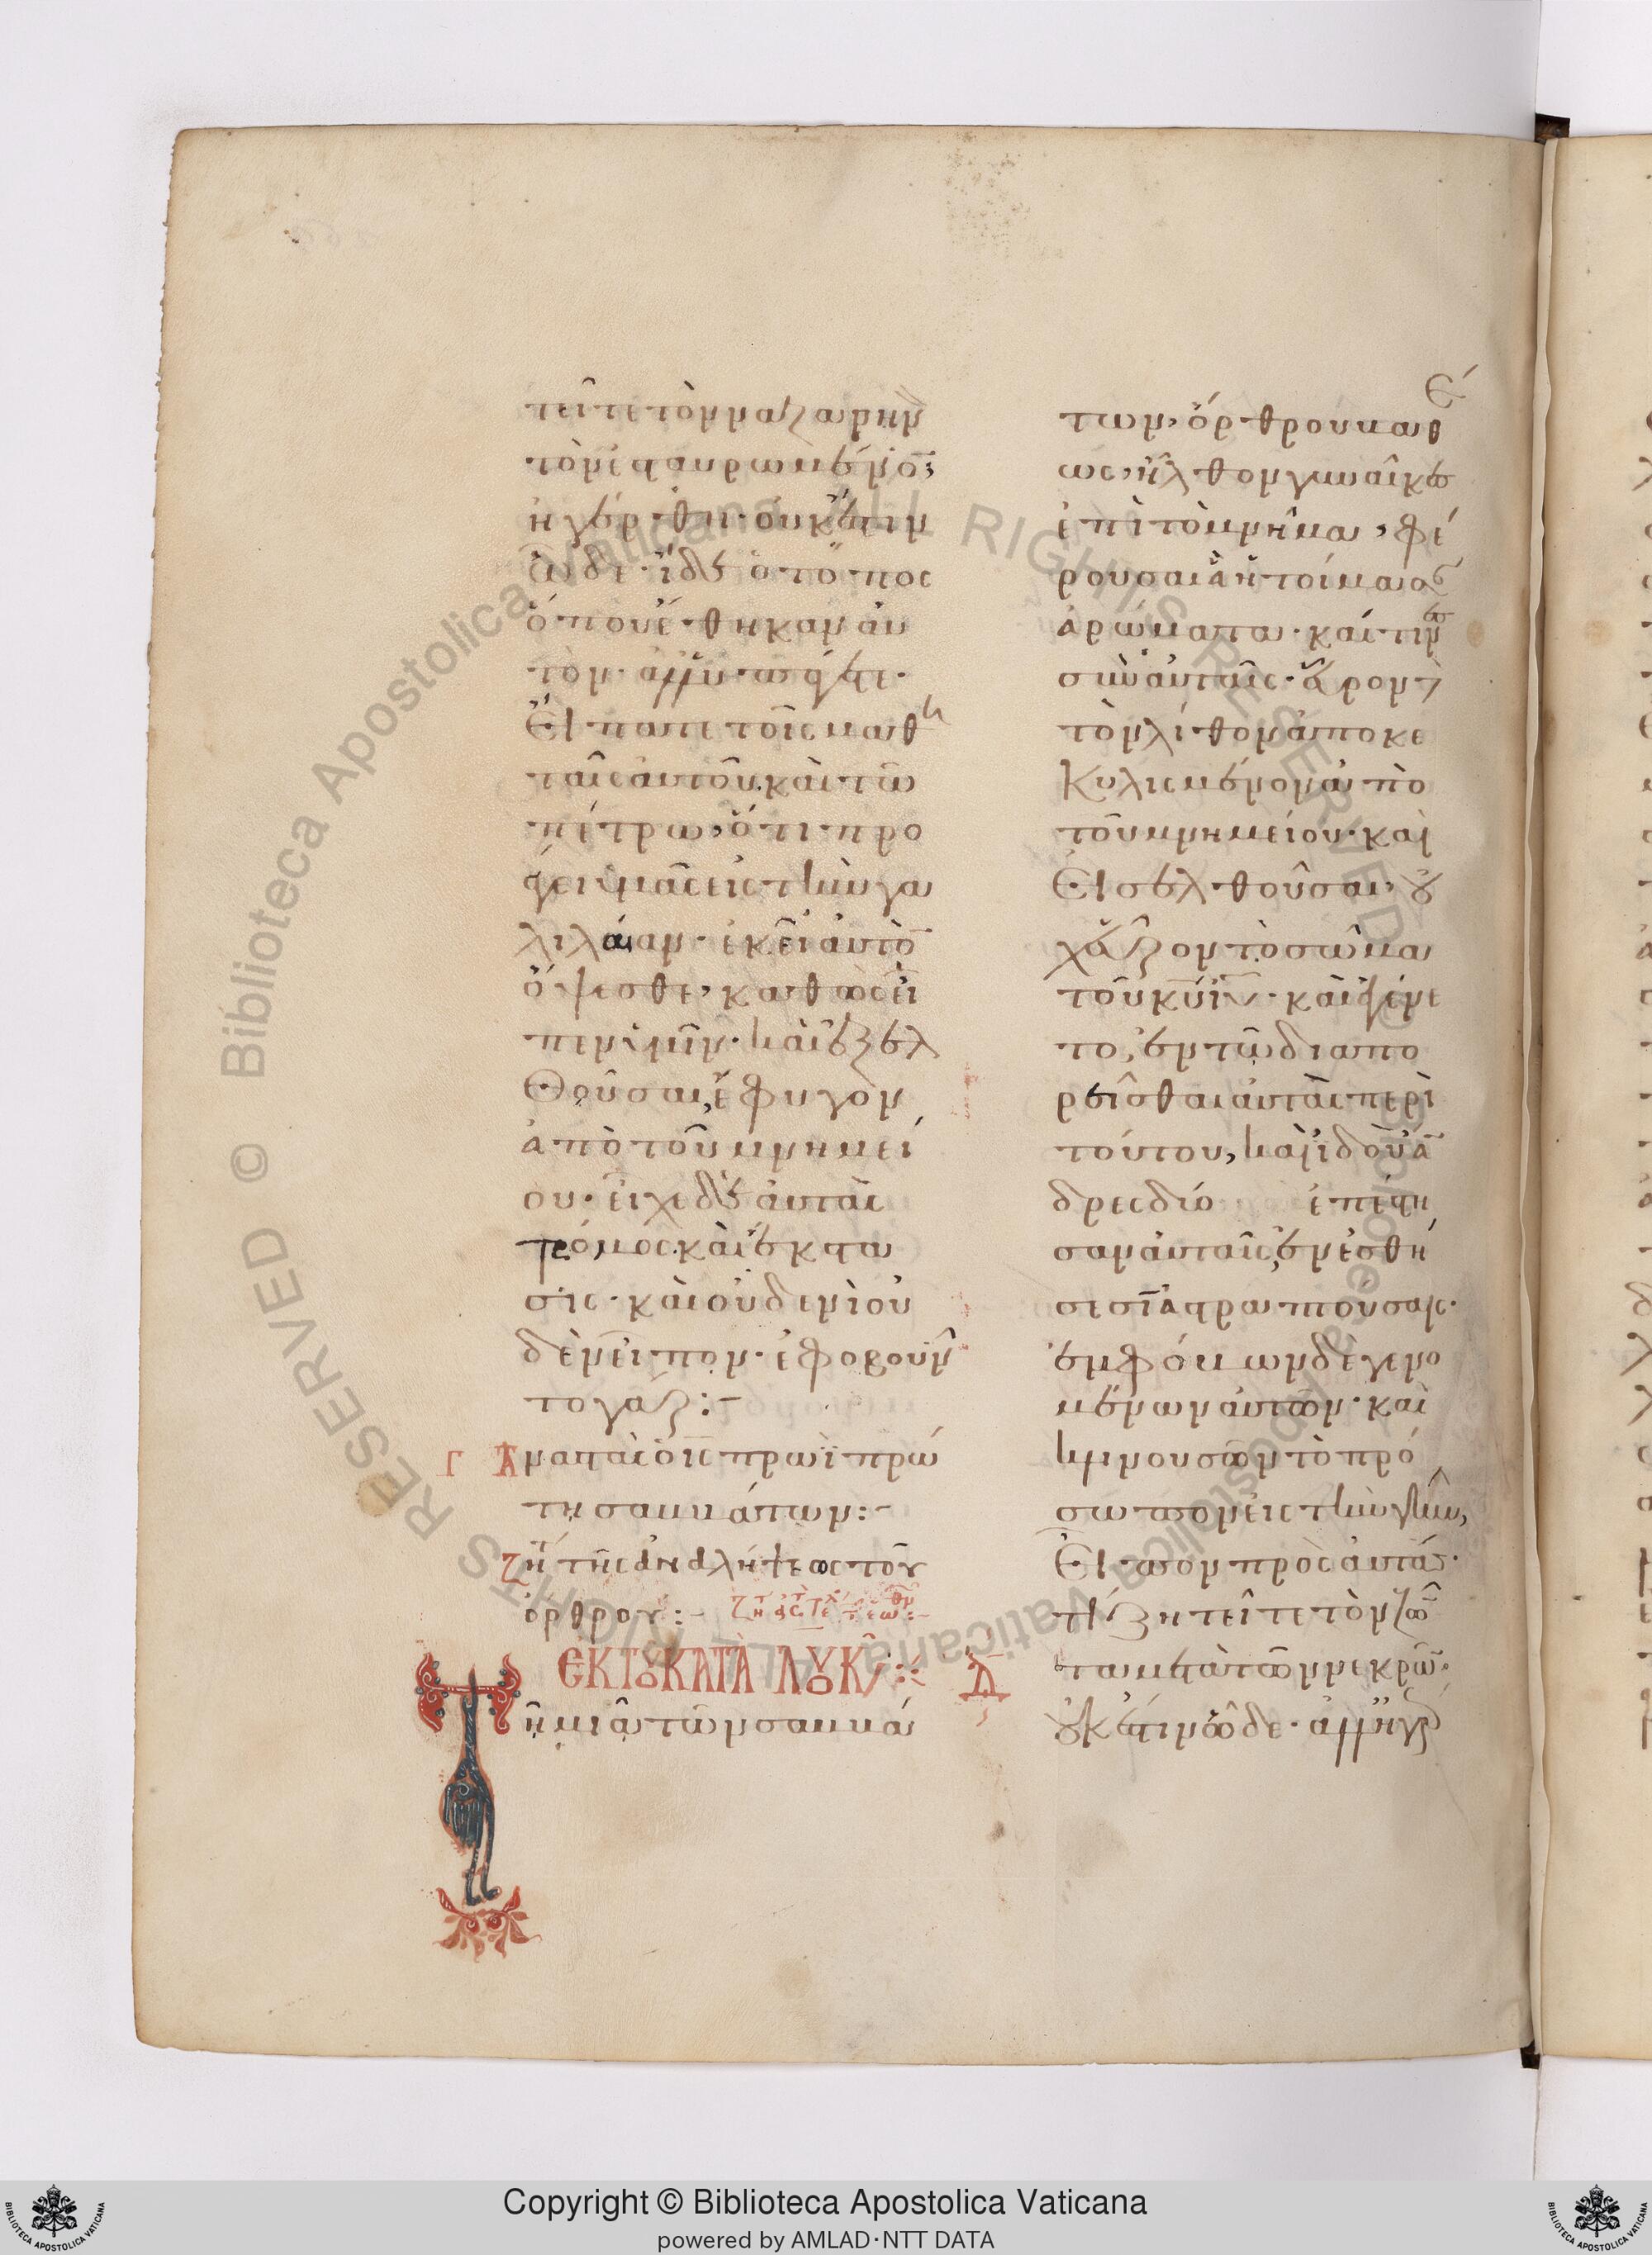 τεῖτε τὸν ναζαρην̅
τὸν ἐσταυρωμένο̅,
ἠγέρθη· οὐκ ἔστιν
ὧδε· ἴδε ὁ τόπος
ὅπου ἔθηκαν αὐ
τόν. ἀλλ' ὑπάγετε·
Εἴπατε τοῖς μαθη
ταῖς αὐτοῦ, καὶ τῶ
πέτρω, ὅτι προ
άγει ὑμᾶς εἰς τὴν γα
λιλαίαν· ἐκεῖ αὐτὸ̅
ὄψεσθε, καθὼς εἶ
πεν ὑμῖν· καὶ ἐξελ
θοῦσαι, ἔφυγον
ἀπὸ τοῦ μνημεί
ου· εἶχε δὲ αὐτὰς
τρόμος καὶ ἔκστα
σις· καὶ οὐδενὶ οὐ
δὲν εἶπον· ἐφοβοῦν
το γάρ:-
Γ Ἀναστάσις πρωῒ πρώ
τη σαββάτων:-
ζή τῆς ἀναλήψεως τοῦ
ὄρθρου:-
ΕΚ ΤΟΥ ΚΑΤΑ ΛΟΥΚ
Τῆ μιᾶ τῶν σαββά
Ε
των, ὄρθρου βαθέ
ως, ἦλθον γυναῖκες
ἐπὶ τὸ μνῆμα, φέ
ρουσαι ἃ ἡτοίμασαν
ἀρώματα· καί τινες
σὺν αὐταῖς· εὗρον δὲ
τὸν λίθον ἀποκε
κυλισμένον ἀπὸ
τοῦ μνημείου· καὶ
Εἰσελθοῦσαι, οὐ
χ' εὗρον τὸ σῶμα
τοῦ κυ ιυ· καὶ ἐγένε
το, ἐν τῶ διαπο
ρεῖσθαι αὐτὰς περὶ
τούτου, καὶ ἰδοὺ ἄ̅
δρες δύο ἐπέστη
σαν αὐταῖς, ἐν ἐσθή
σεσιν ἀστραπτούσαις·
ἐμφόβων δὲ γενο
μένων αὐτῶν· καὶ
κλινουσῶν τὸ πρό
σωπον εἰς τὴν γῆν,
Εἶπον πρὸς αὐτάς·
τί ζητεῖτε τὸν ζῶ̅
τα μετὰ τῶν νεκρῶ̅·
οὐκ ἔστιν ὧδε· ἀλλ' ἠγέρ
Copyright © Biblioteca Apostolica Vaticana
powered by AMLAD·NTT DATA